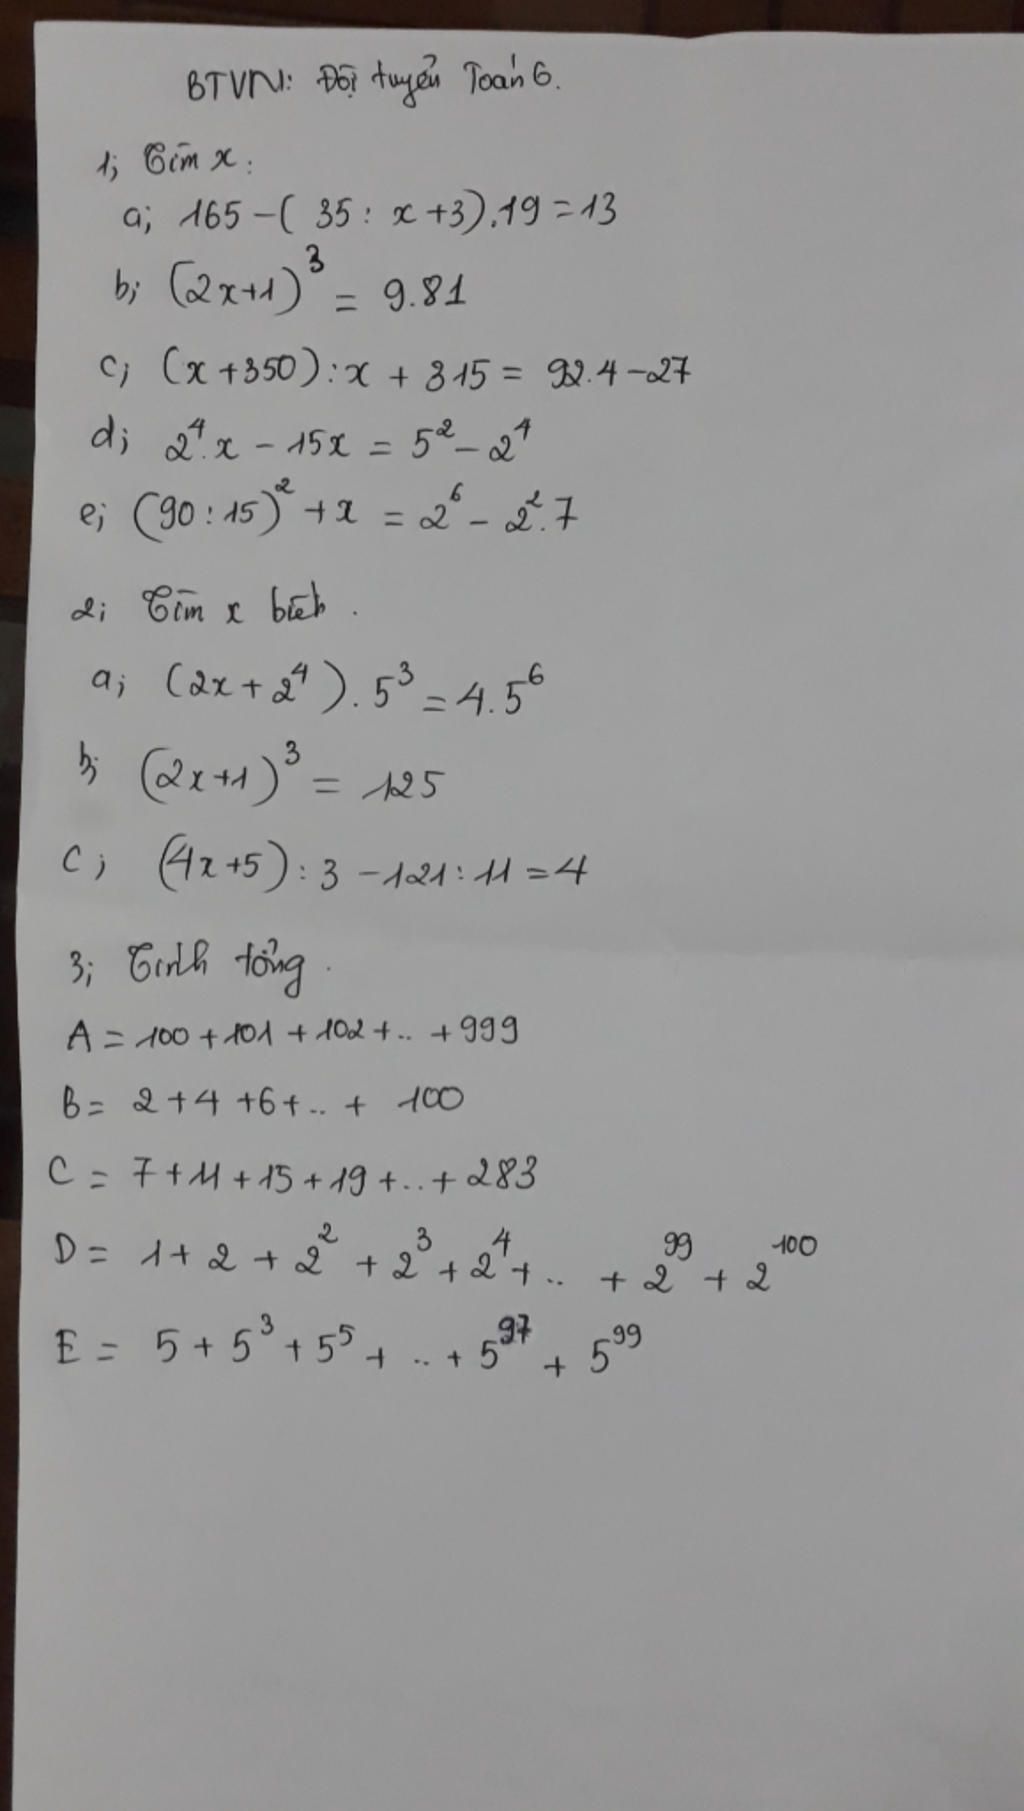 BTVN: Đội tuyển Toán 6.
1; Tìm x:
a; 165 - ( 35 : x + 3 ) . 19 = 13
b; (2x+1)³ = 9.81
c; (x + 350) : x + 315 = 92.4 - 27
d; 2⁴.x - 15x = 5² - 2⁴
e; (90 : 15)² + x = 2⁶ - 2².7
2; Tìm x biết .
a; (2x + 2⁴) . 5³ = 4.5⁶
b; (2x+1)³ = 125
c; (4x+5) : 3 - 121 : 11 = 4
3; Tính tổng .
A = 100 + 101 + 102 + .. + 999
B = 2 + 4 + 6 + .. + 100
C = 7 + 11 + 15 + 19 + .. + 283
D = 1 + 2 + 2² + 2³ + 2⁴ + .. + 2⁹⁹ + 2¹⁰⁰
E = 5 + 5³ + 5⁵ + .. + 5⁹⁷ + 5⁹⁹